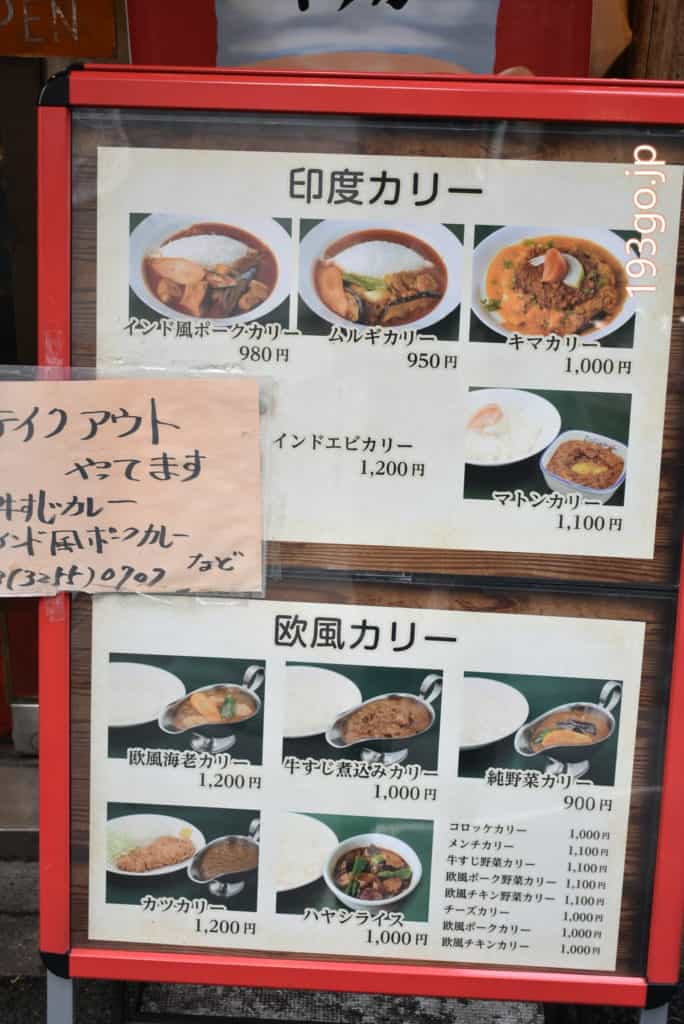 PEN
193go.jp
印度カリー
インド風ポークカリー
980円
ムルギカリー
950円
キマカリー
1,000円
インドエビカリー
1,200円
マトンカリー
1,100円
テイクアウト
やってます
牛すじカレー
インド風ポークカレー
など
3(3255)0707
欧風カリー
欧風海老カリー
1,200円
牛すじ煮込みカリー
1,000円
純野菜カリー
900円
カツカリー
1,200円
ハヤシライス
1,000円
コロッケカリー 1,000円
メンチカリー 1,100円
牛すじ野菜カリー 1,100円
欧風ポーク野菜カリー 1,100円
欧風チキン野菜カリー 1,100円
チーズカリー 1,000円
欧風ポークカリー 1,000円
欧風チキンカリー 1,000円